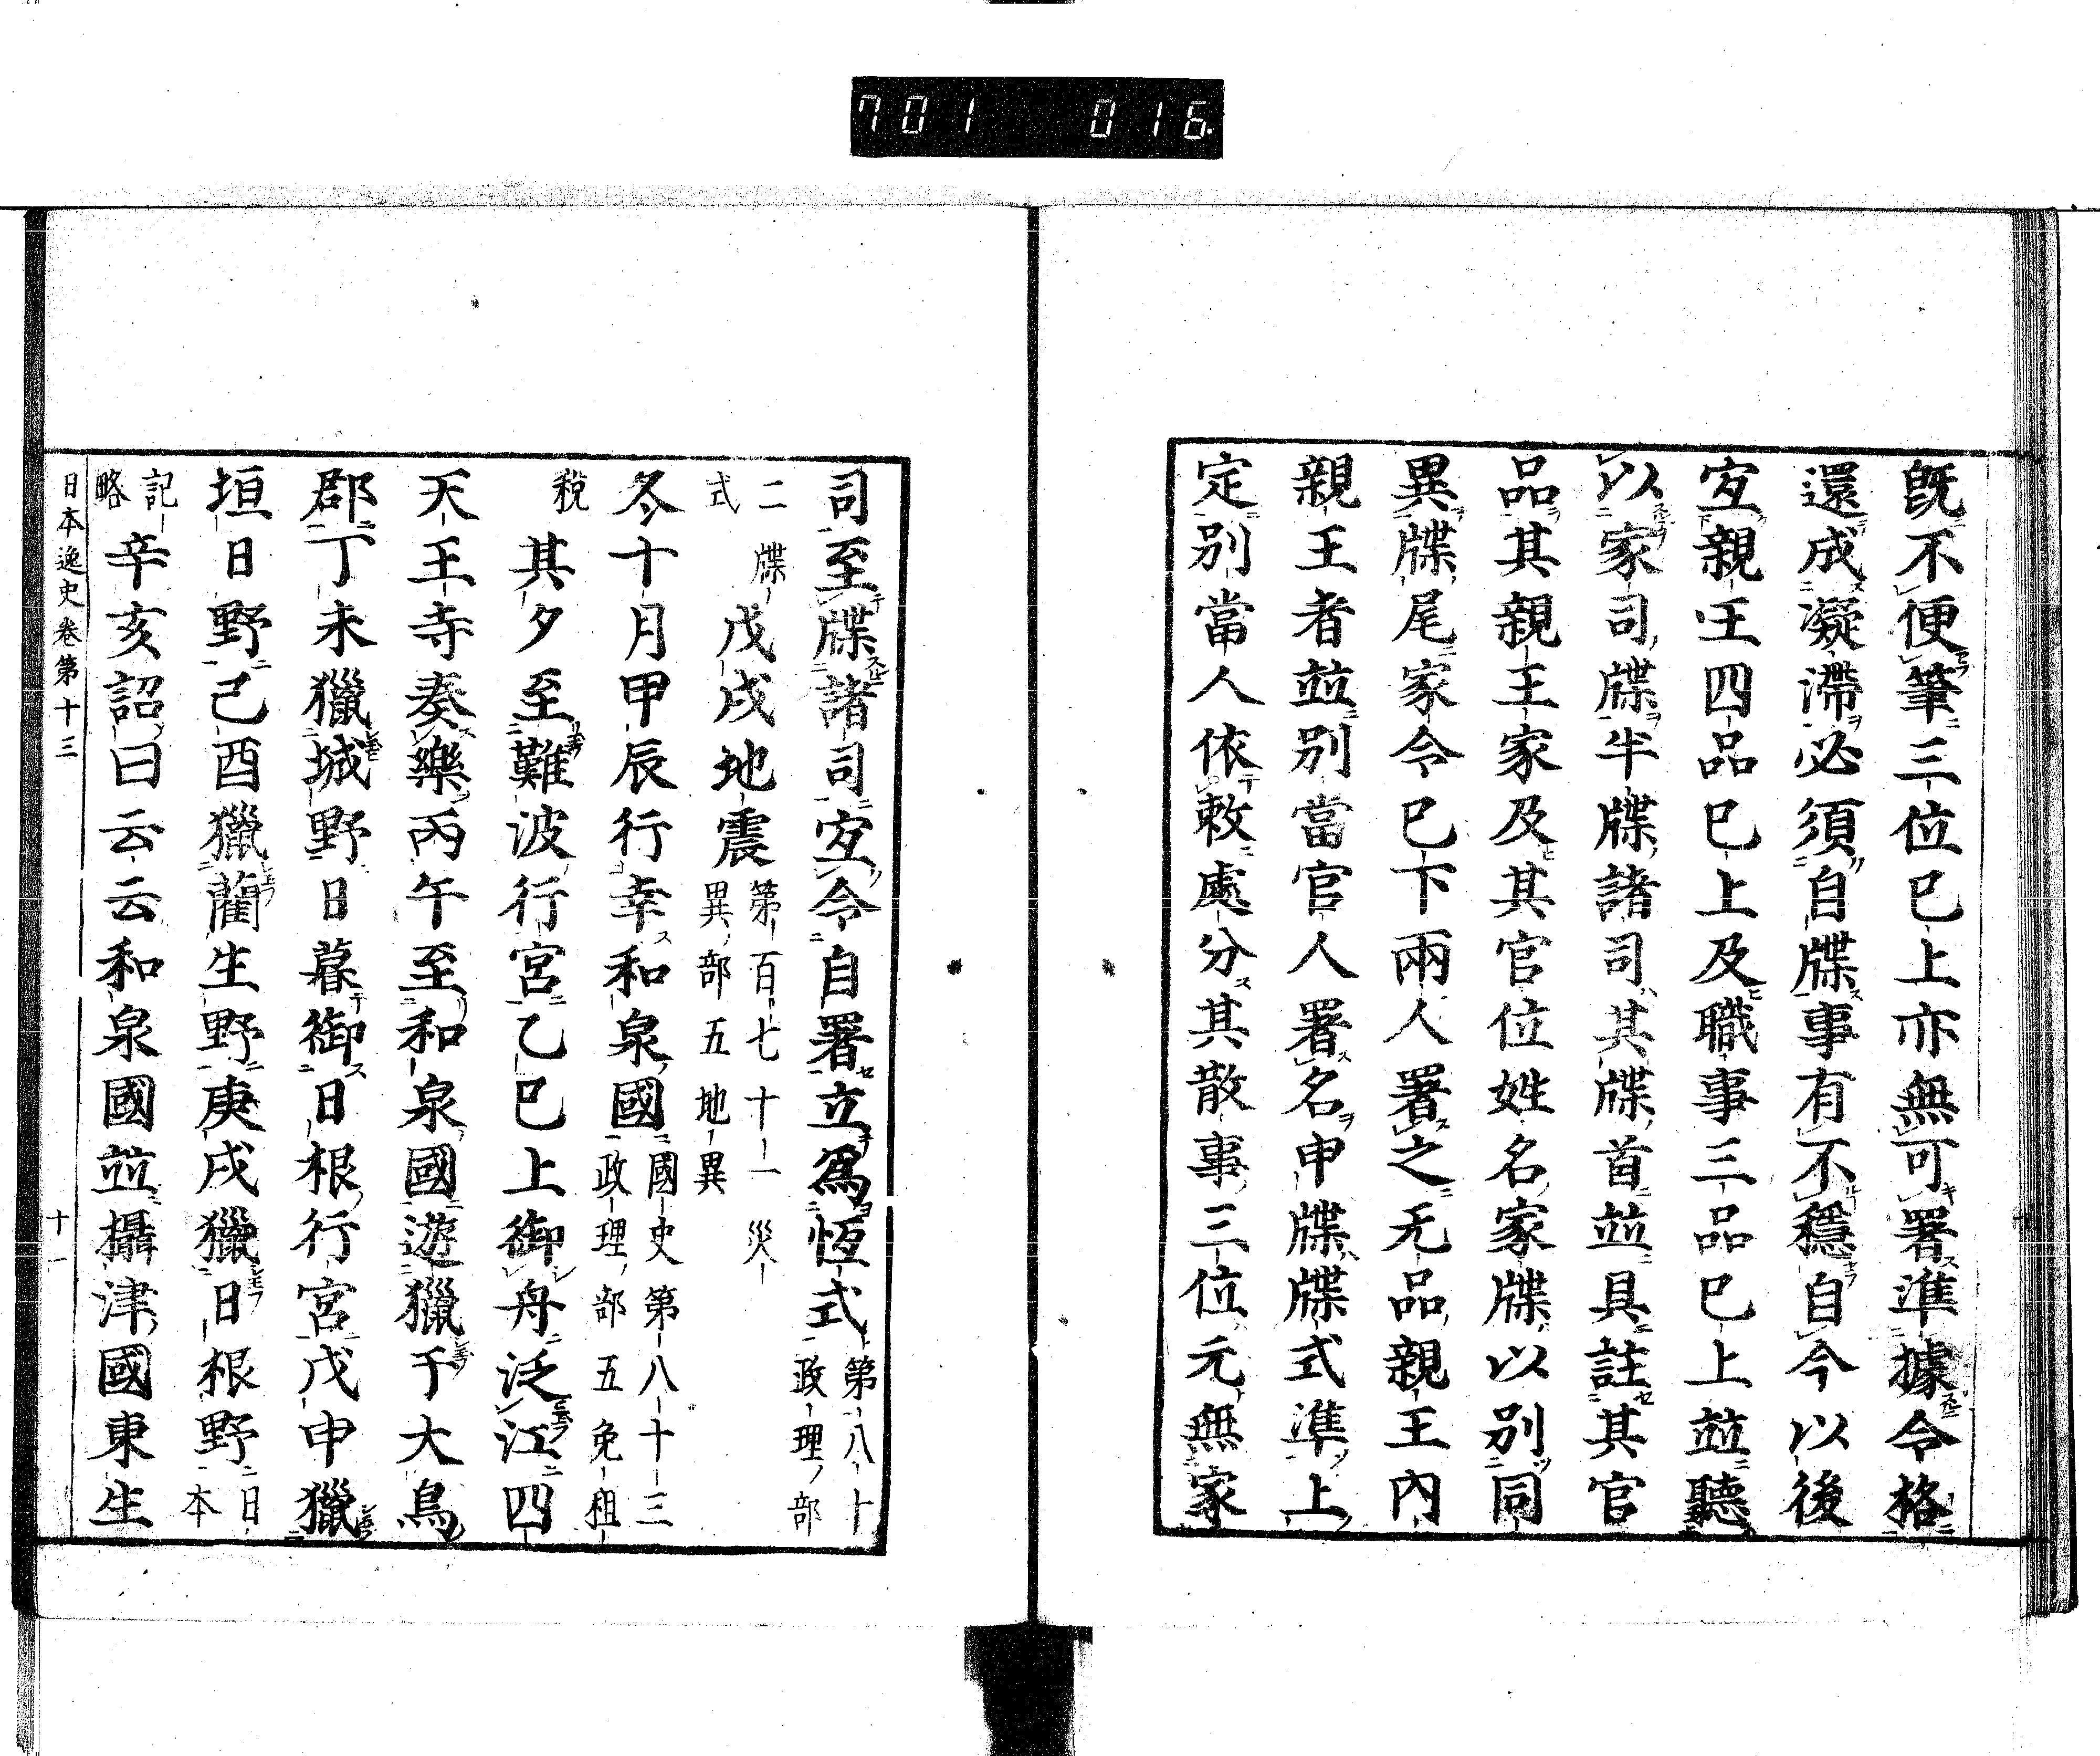 701 016
既不便筆三位已上亦無可署準據令格
還成凝滯必須自牒事有不穩自今以後
宐親王四品已上及職事三品已上竝聽
以家司牒牛牒諸司其牒首竝具註其官
品其親王家及其官位姓名家牒以別同
異牒尾家令已下兩人署之无品親王內
親王者竝別當官人署名申牒牒式準上
定別當人依敕處分其散事三位元無家
司至牒諸司宐令自署立爲恆式第八十
政理部
二 牒
式 戊戌地震第百七十一 災
異部五地異
冬十月甲辰行幸和泉國國史第八十三
政理部五免租
稅 其夕至難波行宮乙巳上御舟泛江四
天王寺奏樂丙午至和泉國遊獵于大鳥
郡丁未獵城野日暮御日根行宮戊申獵
垣日野己酉獵藺生野庚戌獵日根野日
本
記
略 辛亥詔曰云云和泉國竝攝津國東生
日本逸史卷第十三 十一